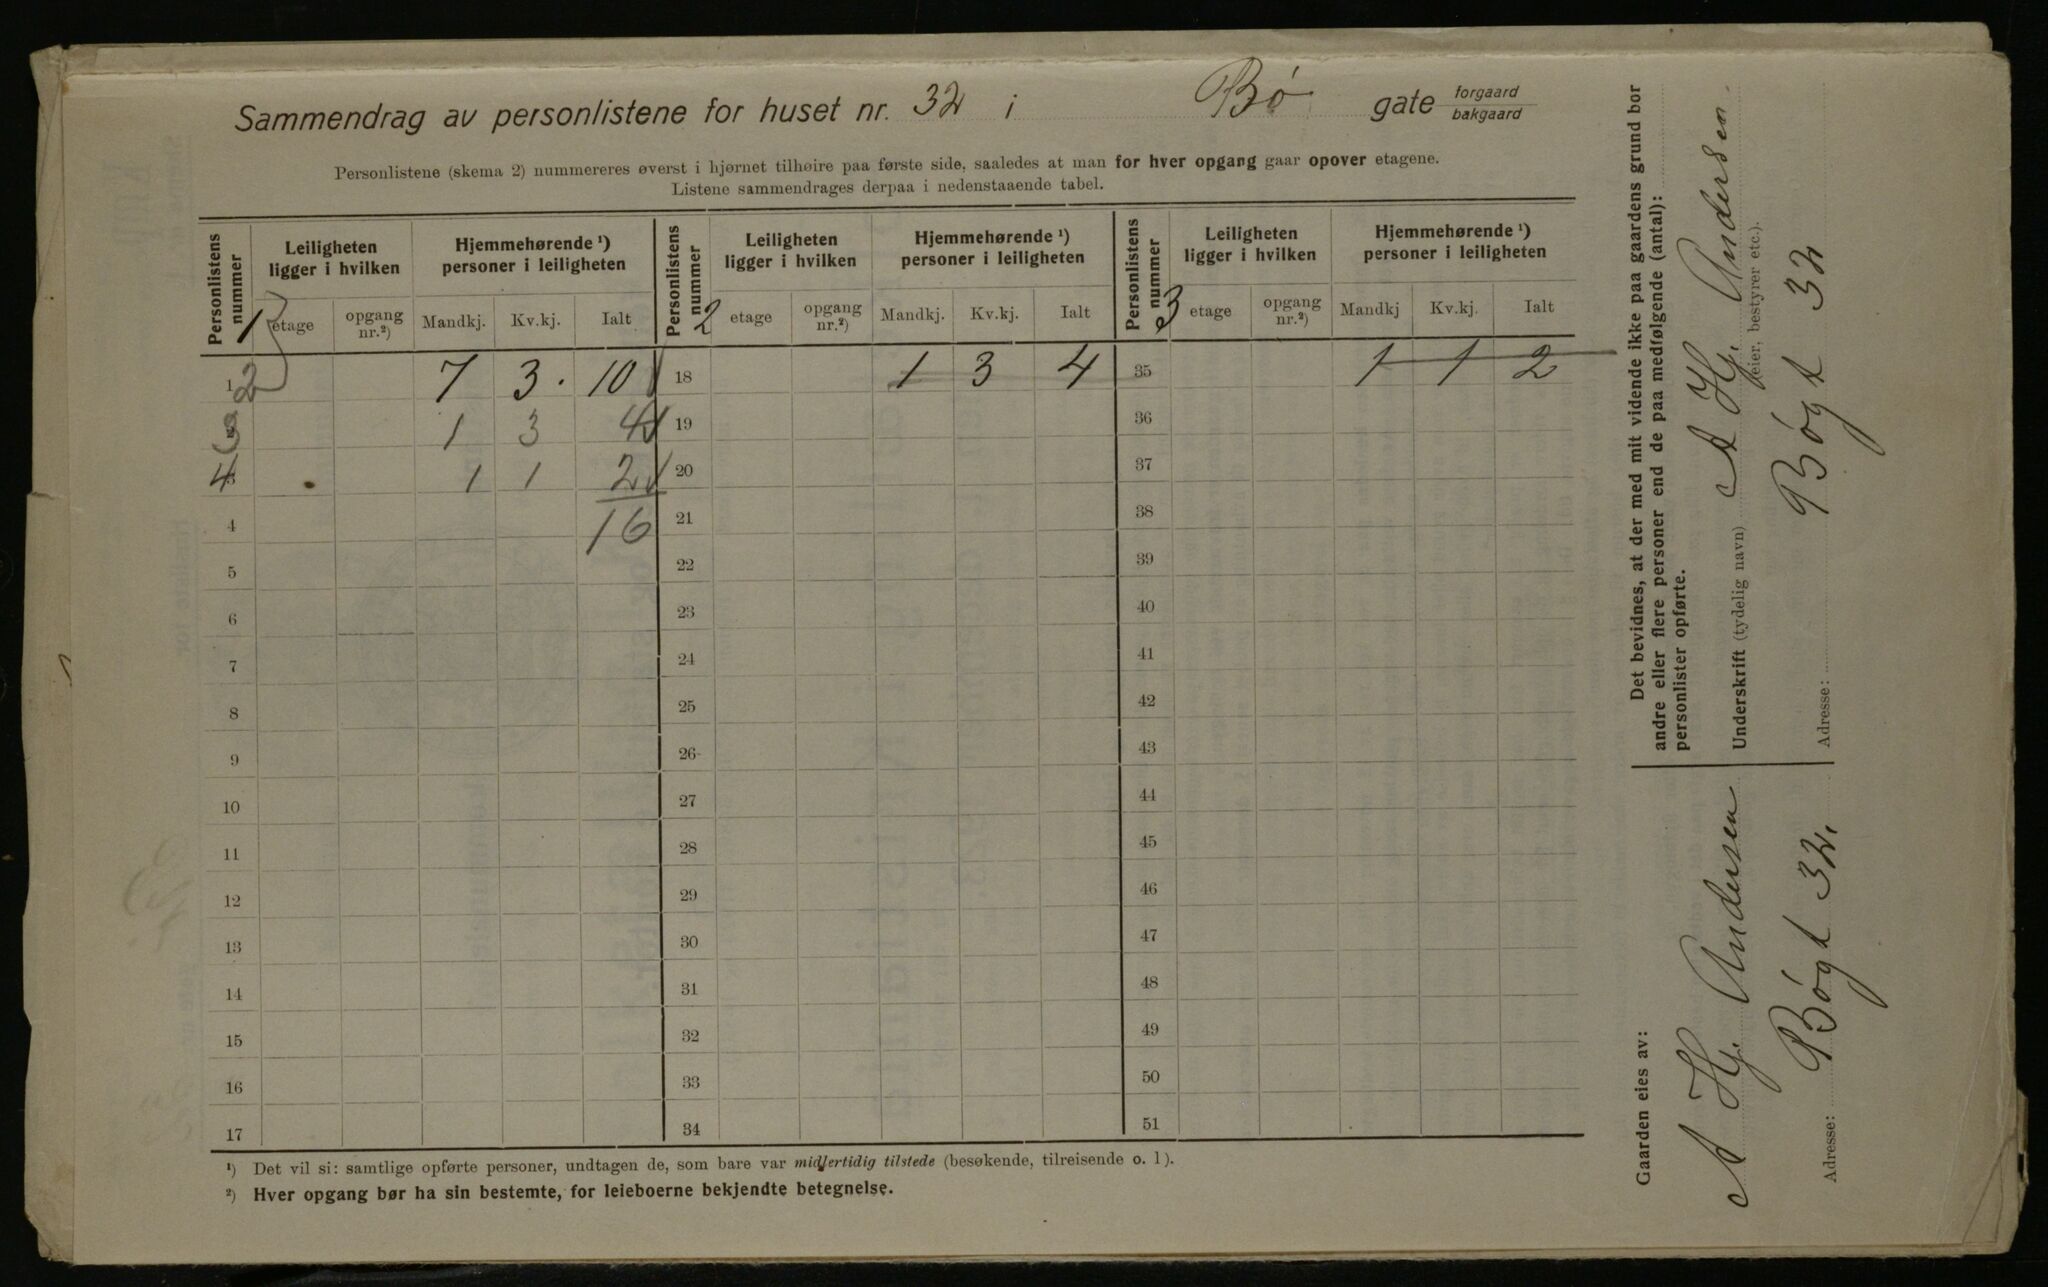 Sammendrag av personlistene for huset nr. 32 i Bø gate forgaard / bakgaard
Personlistene (skema 2) nummereres øverst i hjørnet tilhøire paa første side, saaledes at man for hver opgang gaar opover etagene.
Listene sammendrages derpaa i nedenstaaende tabel.
Personlistens nummer 1 Leiligheten ligger i hvilken Hjemmehørende ¹) personer i leiligheten Personlistens nummer 2 Leiligheten ligger i hvilken Hjemmehørende ¹) personer i leiligheten Personlistens nummer 3 Leiligheten ligger i hvilken Hjemmehørende ¹) personer i leiligheten
etage opgang nr.²) Mandkj. Kv.kj. Ialt etage opgang nr.²) Mandkj. Kv.kj. Ialt etage opgang nr.²) Mandkj Kv.kj. Ialt
1 2 7 3. 10 18 1 3 4 35 1 1 2
3 1 3 4 19 36
4 1 1 2 20 37
4 16 21 38
5 22 39
6 23 40
7 24 41
8 25 42
9 26 43
10 27 44
11 28 45
12 29 46
13 30 47
14 31 48
15 32 49
16 33 50
17 34 51
¹) Det vil si: samtlige opførte personer, undtagen de, som bare var midlertidig tilstede (besøkende, tilreisende o. l).
²) Hver opgang bør ha sin bestemte, for leieboerne bekjendte betegnelse.
Gaarden eies av:
A Hj. Andersen
Adresse: Bøgt 32.
Det bevidnes, at der med mit vidende ikke paa gaardens grund bor
andre eller flere personer end de paa medfølgende (antal):
personlister opførte.
Underskrift (tydelig navn) A Hj. Andersen.
(eier, bestyrer etc.).
Adresse: Bøgt 32